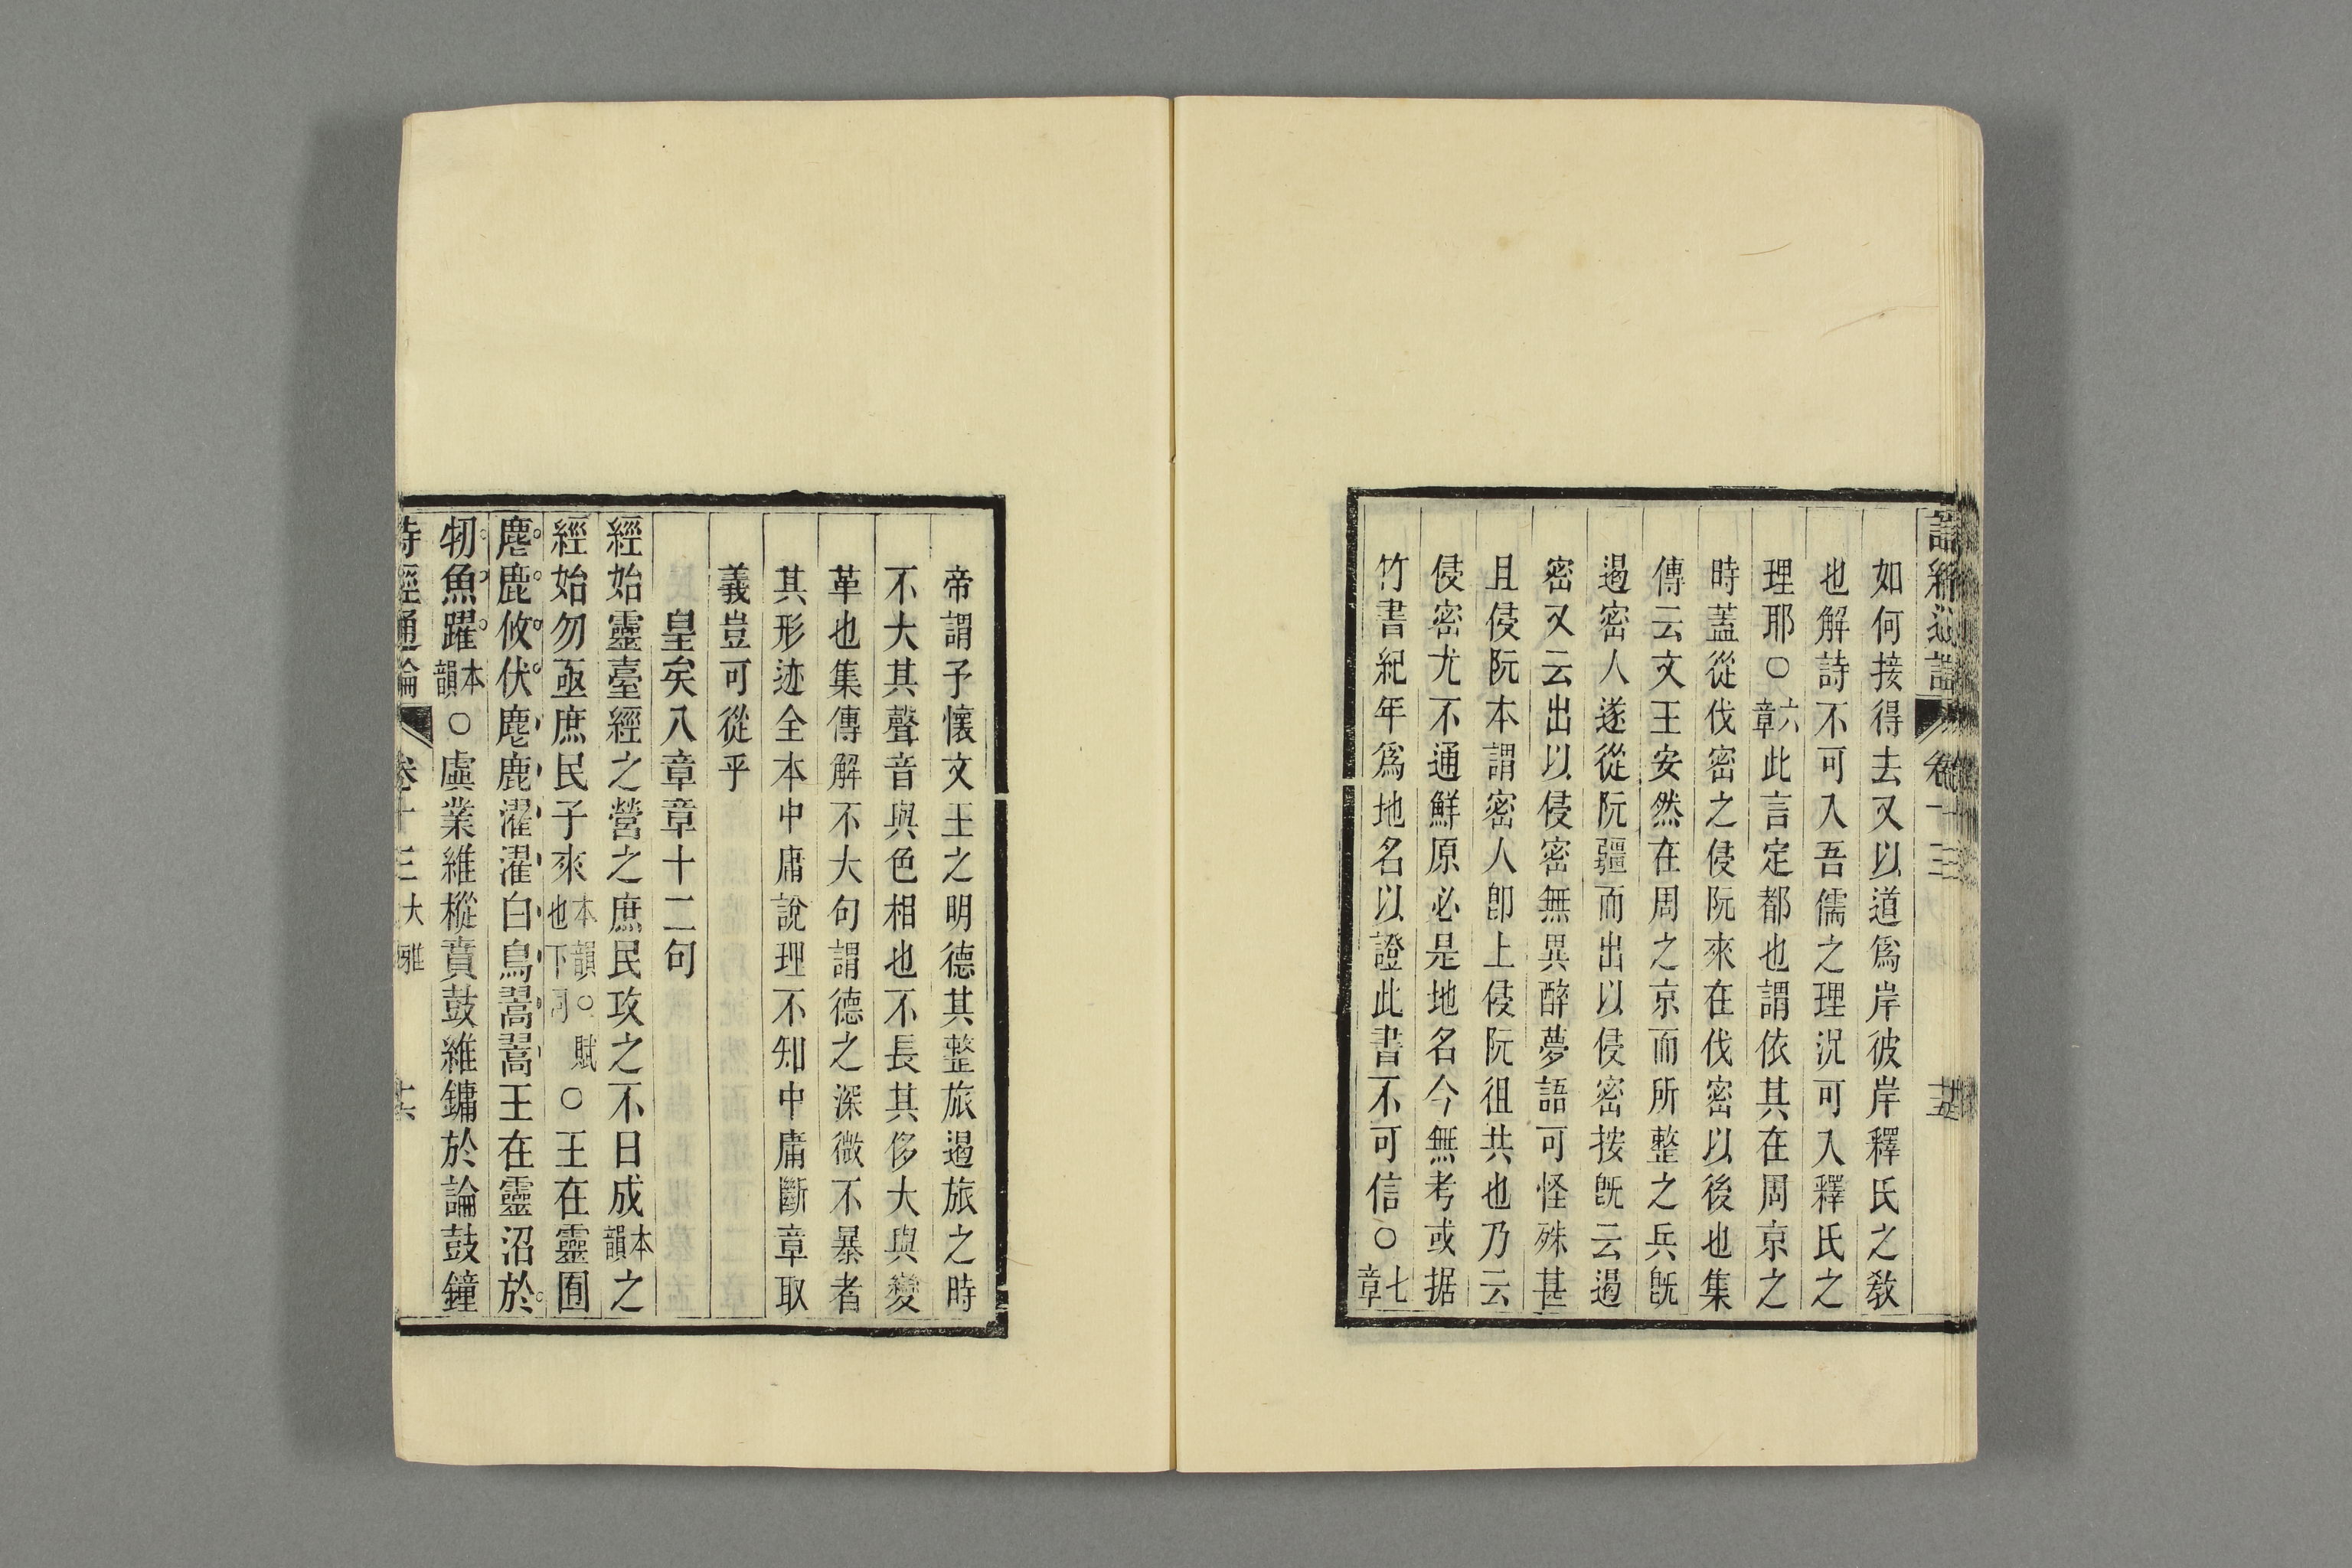 詩經通論 卷十三 十五
如何接得去又以道爲岸彼岸釋氏之教
也解詩不可入吾儒之理況可入釋氏之
理耶○六章此言定都也謂依其在周京之
時蓋從伐密之侵阮來在伐密以後也集
傳云文王安然在周之京而所整之兵旣
遏密人遂從阮疆而出以侵密按旣云遏
密又云出以侵密無異醉夢語可怪殊甚
且侵阮本謂密人卽上侵阮徂共也乃云
侵密尤不通鮮原必是地名今無考或据
竹書紀年爲地名以證此書不可信○七章
帝謂予懷文王之明德其整旅遏旅之時
不大其聲音與色相也不長其侈大與變
革也集傳解不大句謂德之深微不暴著
其形迹全本中庸說理不知中庸斷章取
義豈可從乎
皇矣八章章十二句
經始靈臺經之營之庶民攻之不日成本韻之
經始勿亟庶民子來本韻○賦也下同○王在靈囿
麀鹿攸伏麀鹿濯濯白鳥翯翯王在靈沼於
牣魚躍本韻○虡業維樅賁鼓維鏞於論鼓鐘
詩經通論 卷十三大雅 十六